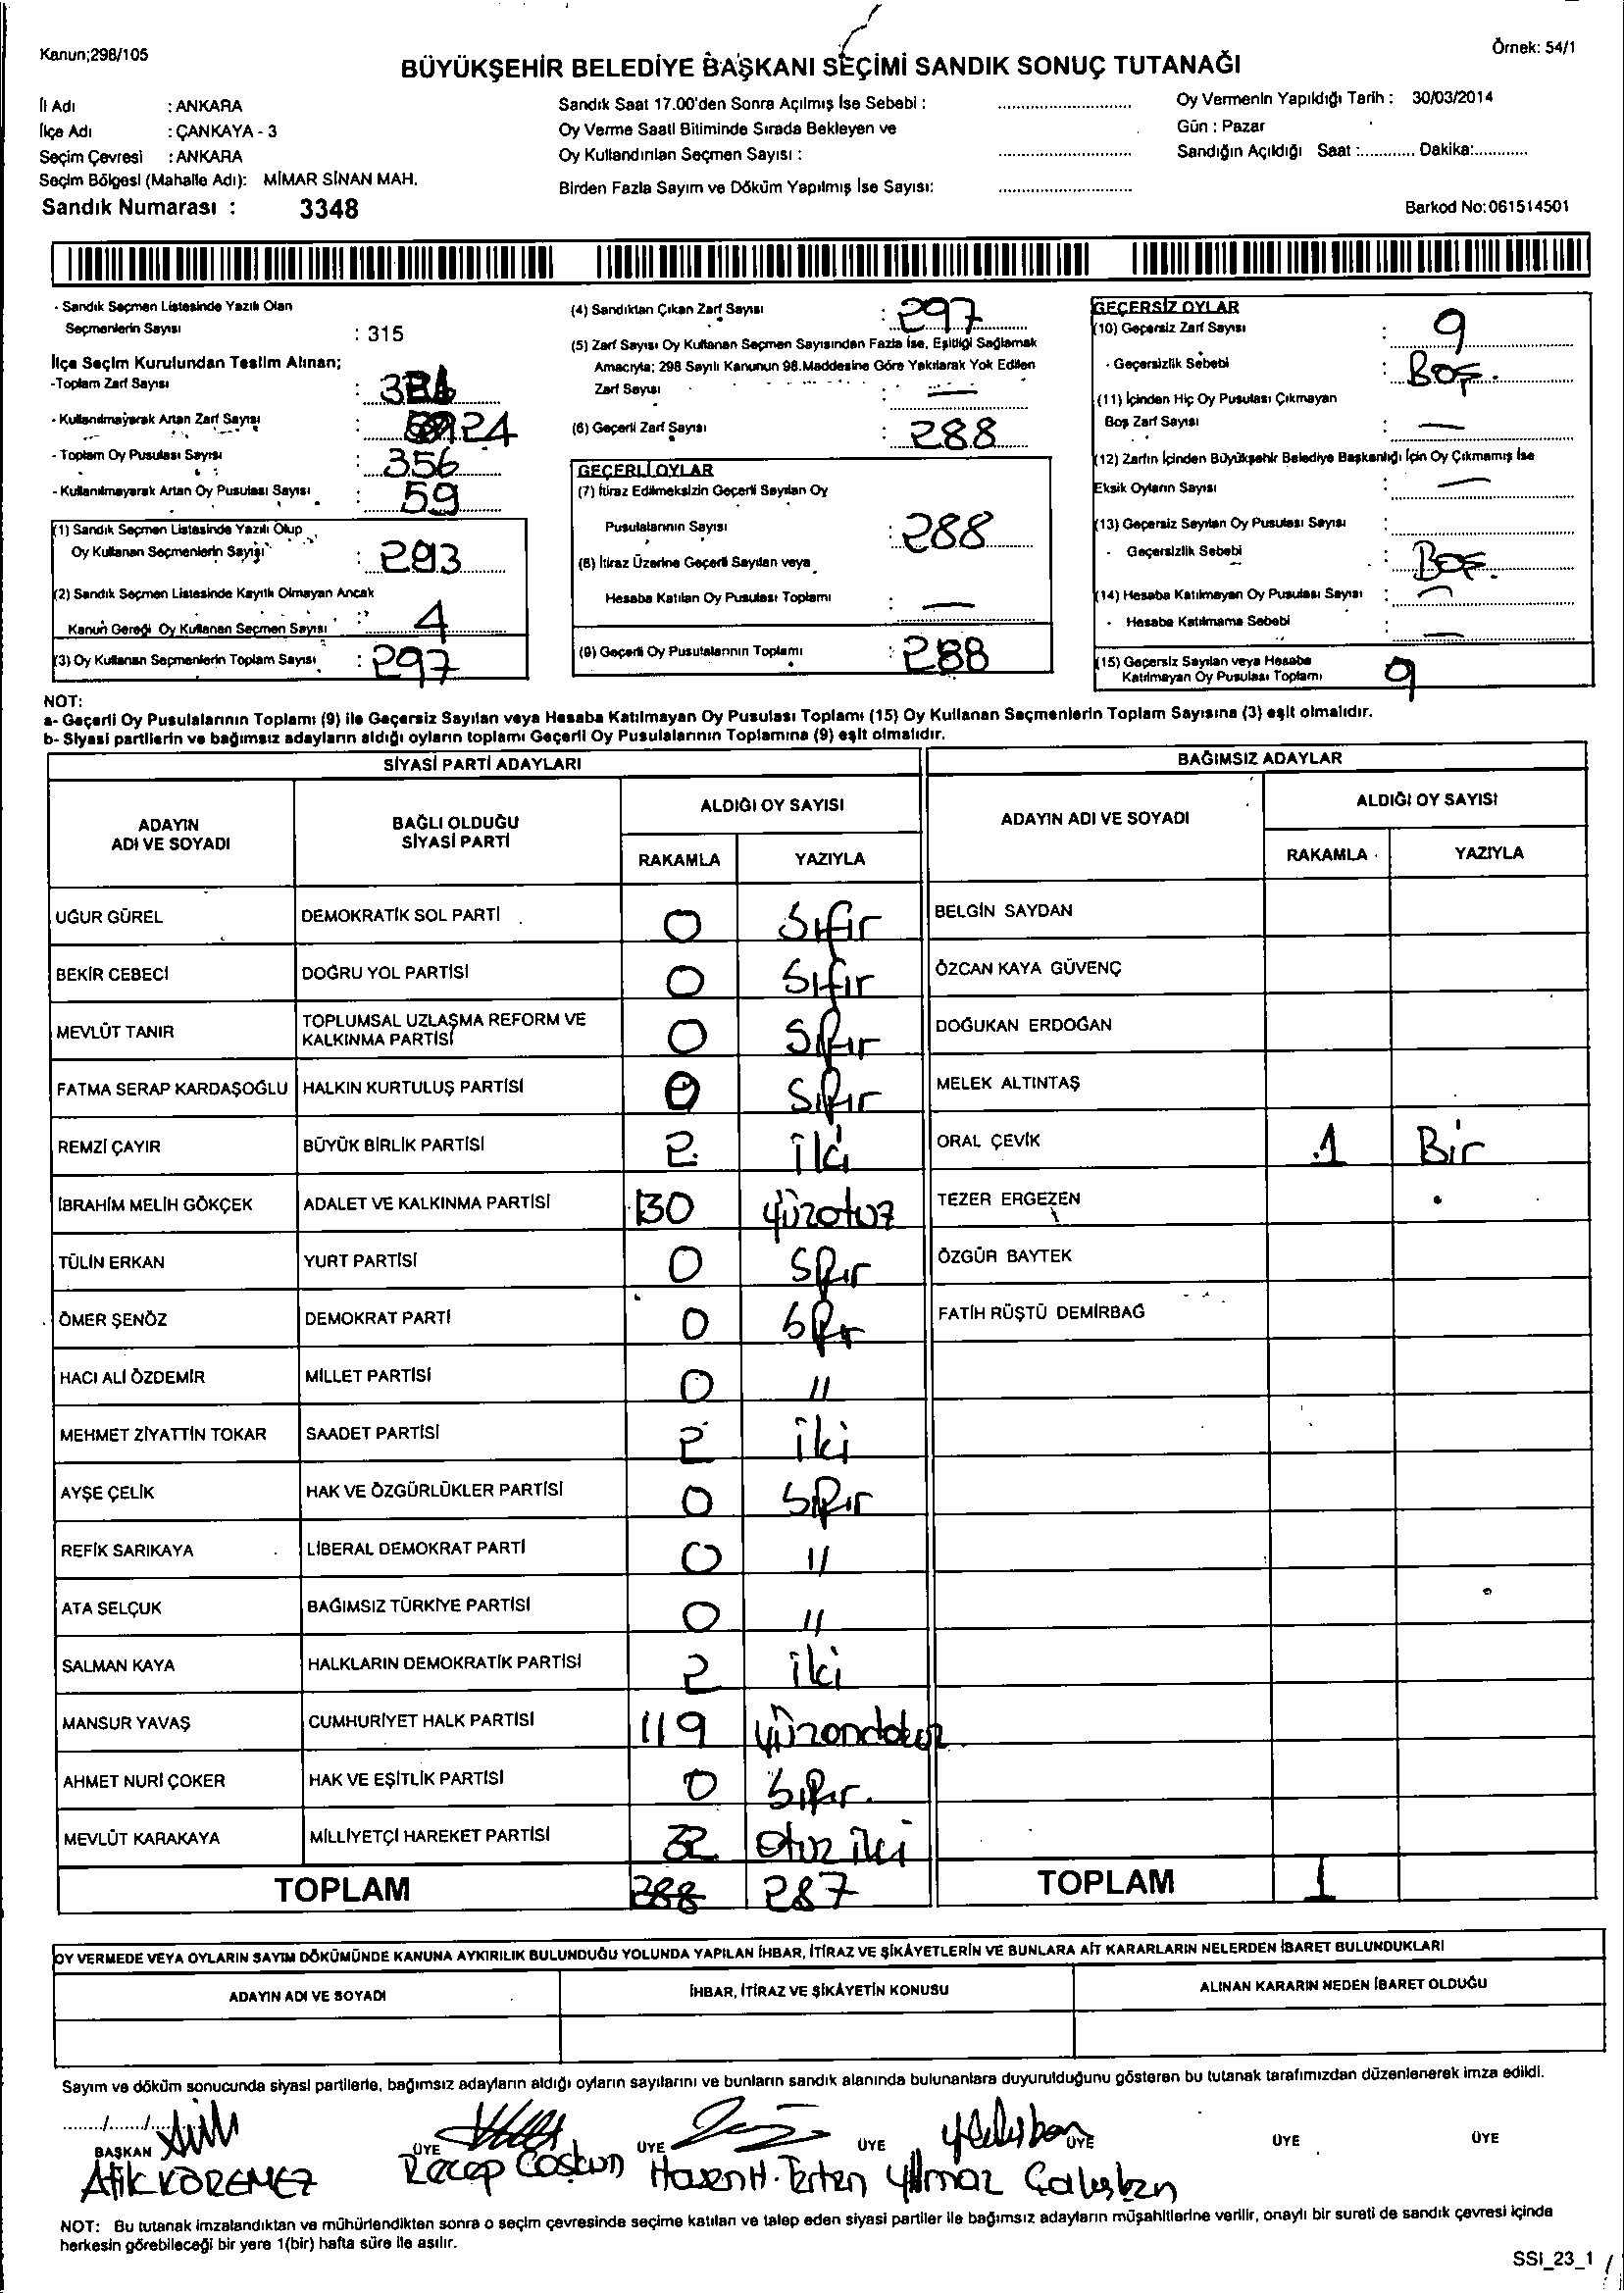 Kanun;298/105
Örnek: 54/1
BÜYÜKŞEHİR BELEDİYE BAŞKANI SEÇİMİ SANDIK SONUÇ TUTANAĞI
İl Adı : ANKARA
İlçe Adı : ÇANKAYA - 3
Seçim Çevresi : ANKARA
Seçim Bölgesi (Mahalle Adı): MİMAR SİNAN MAH.
Sandık Numarası : 3348
Sandık Saat 17.00'den Sonra Açılmış İse Sebebi :
Oy Verme Saati Bitiminde Sırada Bekleyen ve
Oy Kullandırılan Seçmen Sayısı :
Birden Fazla Sayım ve Döküm Yapılmış İse Sayısı:
Oy Vermenin Yapıldığı Tarih : 30/03/2014
Gün : Pazar
Sandığın Açıldığı Saat :............ Dakika:............
Barkod No:061514501
- Sandık Seçmen Listesinde Yazılı Olan
Seçmenlerin Sayısı : 315
İlçe Seçim Kurulundan Teslim Alınan;
-Toplam Zarf Sayısı :
- Kullanılmayarak Artan Zarf Sayısı : 24
- Toplam Oy Pusulası Sayısı : 356
- Kullanılmayarak Artan Oy Pusulası Sayısı : 59
(1) Sandık Seçmen Listesinde Yazılı Olup
Oy Kullanan Seçmenlerin Sayısı : 293
(2) Sandık Seçmen Listesinde Kayıtlı Olmayan Ancak
Kanun Gereği Oy Kullanan Seçmen Sayısı : 4
(3) Oy Kullanan Seçmenlerin Toplam Sayısı : 297
(4) Sandıktan Çıkan Zarf Sayısı : 297
(5) Zarf Sayısı Oy Kullanan Seçmen Sayısından Fazla İse, Eşitliği Sağlamak
Amacıyla; 298 Sayılı Kanunun 98.Maddesine Göre Yakılarak Yok Edilen
Zarf Sayısı : —
(6) Geçerli Zarf Sayısı : 288
GEÇERLİ OYLAR
(7) İtiraz Edilmeksizin Geçerli Sayılan Oy
Pusulalarının Sayısı : 288
(8) İtiraz Üzerine Geçerli Sayılan veya
Hesaba Katılan Oy Pusulası Toplamı : —
(9) Geçerli Oy Pusulalarının Toplamı : 288
GEÇERSİZ OYLAR
(10) Geçersiz Zarf Sayısı : 9
- Geçersizlik Sebebi : BOŞ.
(11) İçinden Hiç Oy Pusulası Çıkmayan
Boş Zarf Sayısı : —
(12) Zarfın İçinden Büyükşehir Belediye Başkanlığı İçin Oy Çıkmamış İse
Eksik Oyların Sayısı : —
(13) Geçersiz Sayılan Oy Pusulası Sayısı :
- Geçersizlik Sebebi : BOŞ.
(14) Hesaba Katılmayan Oy Pusulası Sayısı : —
- Hesaba Katılmama Sebebi : —
(15) Geçersiz Sayılan veya Hesaba
Katılmayan Oy Pusulası Toplamı 9
NOT:
a- Geçerli Oy Pusulalarının Toplamı (9) ile Geçersiz Sayılan veya Hesaba Katılmayan Oy Pusulası Toplamı (15) Oy Kullanan Seçmenlerin Toplam Sayısına (3) eşit olmalıdır.
b- Siyasi partilerin ve bağımsız adayların aldığı oyların toplamı Geçerli Oy Pusulalarının Toplamına (9) eşit olmalıdır.
SİYASİ PARTİ ADAYLARI
BAĞIMSIZ ADAYLAR
ADAYIN ADI VE SOYADI
BAĞLI OLDUĞU SİYASİ PARTİ
ALDIĞI OY SAYISI
RAKAMLA YAZIYLA
ADAYIN ADI VE SOYADI
ALDIĞI OY SAYISI
RAKAMLA YAZIYLA
UĞUR GÜREL DEMOKRATİK SOL PARTİ 0 Sıfır BELGİN SAYDAN
BEKİR CEBECİ DOĞRU YOL PARTİSİ 0 Sıfır ÖZCAN KAYA GÜVENÇ
MEVLÜT TANIR TOPLUMSAL UZLAŞMA REFORM VE KALKINMA PARTİSİ 0 Sıfır DOĞUKAN ERDOĞAN
FATMA SERAP KARDAŞOĞLU HALKIN KURTULUŞ PARTİSİ 0 Sıfır MELEK ALTINTAŞ
REMZİ ÇAYIR BÜYÜK BİRLİK PARTİSİ 2 iki ORAL ÇEVİK 1 Bir
İBRAHİM MELİH GÖKÇEK ADALET VE KALKINMA PARTİSİ 130 yüzotuz TEZER ERGEZEN
TÜLİN ERKAN YURT PARTİSİ 0 Sıfır ÖZGÜR BAYTEK
ÖMER ŞENÖZ DEMOKRAT PARTİ 0 Sıfır FATİH RÜŞTÜ DEMİRBAĞ
HACI ALİ ÖZDEMİR MİLLET PARTİSİ 0 "
MEHMET ZİYATTİN TOKAR SAADET PARTİSİ 2 iki
AYŞE ÇELİK HAK VE ÖZGÜRLÜKLER PARTİSİ 0 Sıfır
REFİK SARIKAYA LİBERAL DEMOKRAT PARTİ 0 "
ATA SELÇUK BAĞIMSIZ TÜRKİYE PARTİSİ 0 "
SALMAN KAYA HALKLARIN DEMOKRATİK PARTİSİ 2 iki
MANSUR YAVAŞ CUMHURİYET HALK PARTİSİ 119 yüzondokuz
AHMET NURİ ÇOKER HAK VE EŞİTLİK PARTİSİ 0 Sıfır.
MEVLÜT KARAKAYA MİLLİYETÇİ HAREKET PARTİSİ 32 otuz iki
TOPLAM 288 287 TOPLAM 1
OY VERMEDE VEYA OYLARIN SAYIM DÖKÜMÜNDE KANUNA AYKIRILIK BULUNDUĞU YOLUNDA YAPILAN İHBAR, İTİRAZ VE ŞİKÂYETLERİN VE BUNLARA AİT KARARLARIN NELERDEN İBARET BULUNDUKLARI
ADAYIN ADI VE SOYADI İHBAR, İTİRAZ VE ŞİKÂYETİN KONUSU ALINAN KARARIN NEDEN İBARET OLDUĞU
Sayım ve döküm sonucunda siyasi partilerle, bağımsız adayların aldığı oyların sayılarını ve bunların sandık alanında bulunanlara duyurulduğunu gösteren bu tutanak tarafımızdan düzenlenerek imza edildi.
....../....../......
BAŞKAN ÜYE ÜYE ÜYE ÜYE ÜYE ÜYE
Atik KÖREMEZ Recep Coşkun Hasan H. Terten Yılmaz Çalışkan
NOT: Bu tutanak imzalandıktan ve mühürlendikten sonra o seçim çevresinde seçime katılan ve talep eden siyasi partiler ile bağımsız adayların müşahitlerine verilir, onaylı bir sureti de sandık çevresi içinde
herkesin görebileceği bir yere 1(bir) hafta süre ile asılır.
SSI_23_1